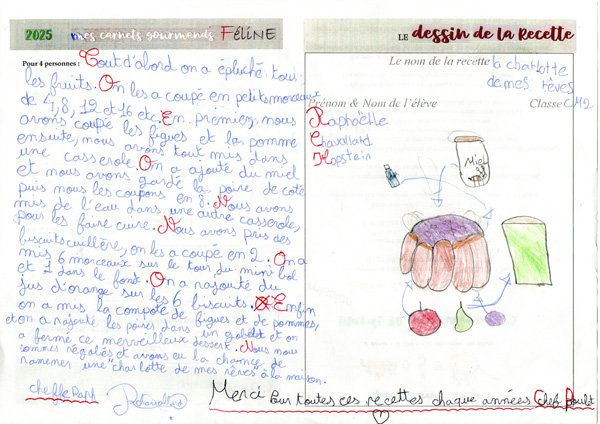 2025 mes carnets gourmands FÉLINE
Pour 4 personnes : Tout d'abord on a épluché tous
les fruits. On les a coupé en petits morceaux
de 4, 8, 12 et 16 etc. En premier, nous
avons coupé les figues et la pomme
ensuite, nous avons tout mis dans
une casserole. On a ajouté du miel
et nous avons gardé la poire de coté
puis nous les coupons en 8. Nous avons
mis de l'eau dans une autre casserole,
pour les faire cuire. Nous avons pris des
biscuits cuillère, on les a coupé en 2. On a
mis 6 morceaux sur le tour du mini bol
et 1 dans le font. On a rajouté du
jus d'orange sur les 6 biscuits. Enfin
on a mis la compote de figues et de pommes,
et on a rajouté les poires dans un gobelet et on
a fermé ce merveilleux dessert. Nous nous
sommes régalés et avons eu la chance de
ramener une "charlotte de mes rêves" à la maison.
cheffe Raph
LE dessin de la Recette
Le nom de la recette la charlotte
de mes rêves
Prénom & Nom de l'élève Classe CM2
Raphaëlle
Chavallard
Hopstein
Miel
Merci Pour toutes ces recettes chaque années Chef Poulet